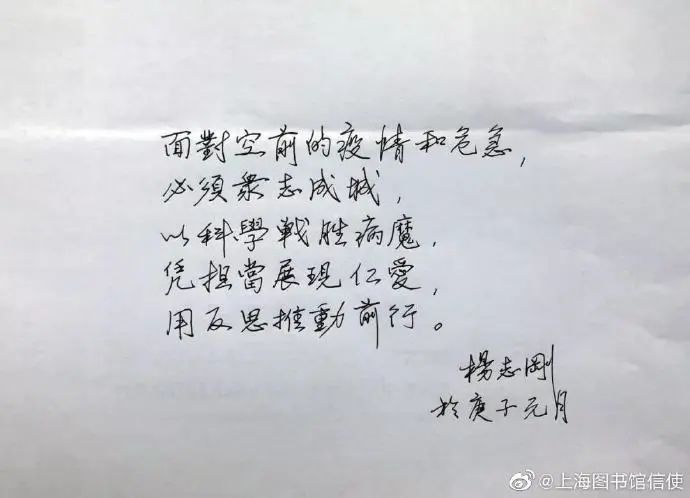 面對空前的疫情和危急，
必須衆志成城，
以科學戰勝病魔，
凭担當展現仁愛，
用反思推動前行。
楊志剛
於庚子元月
@上海图书馆信使